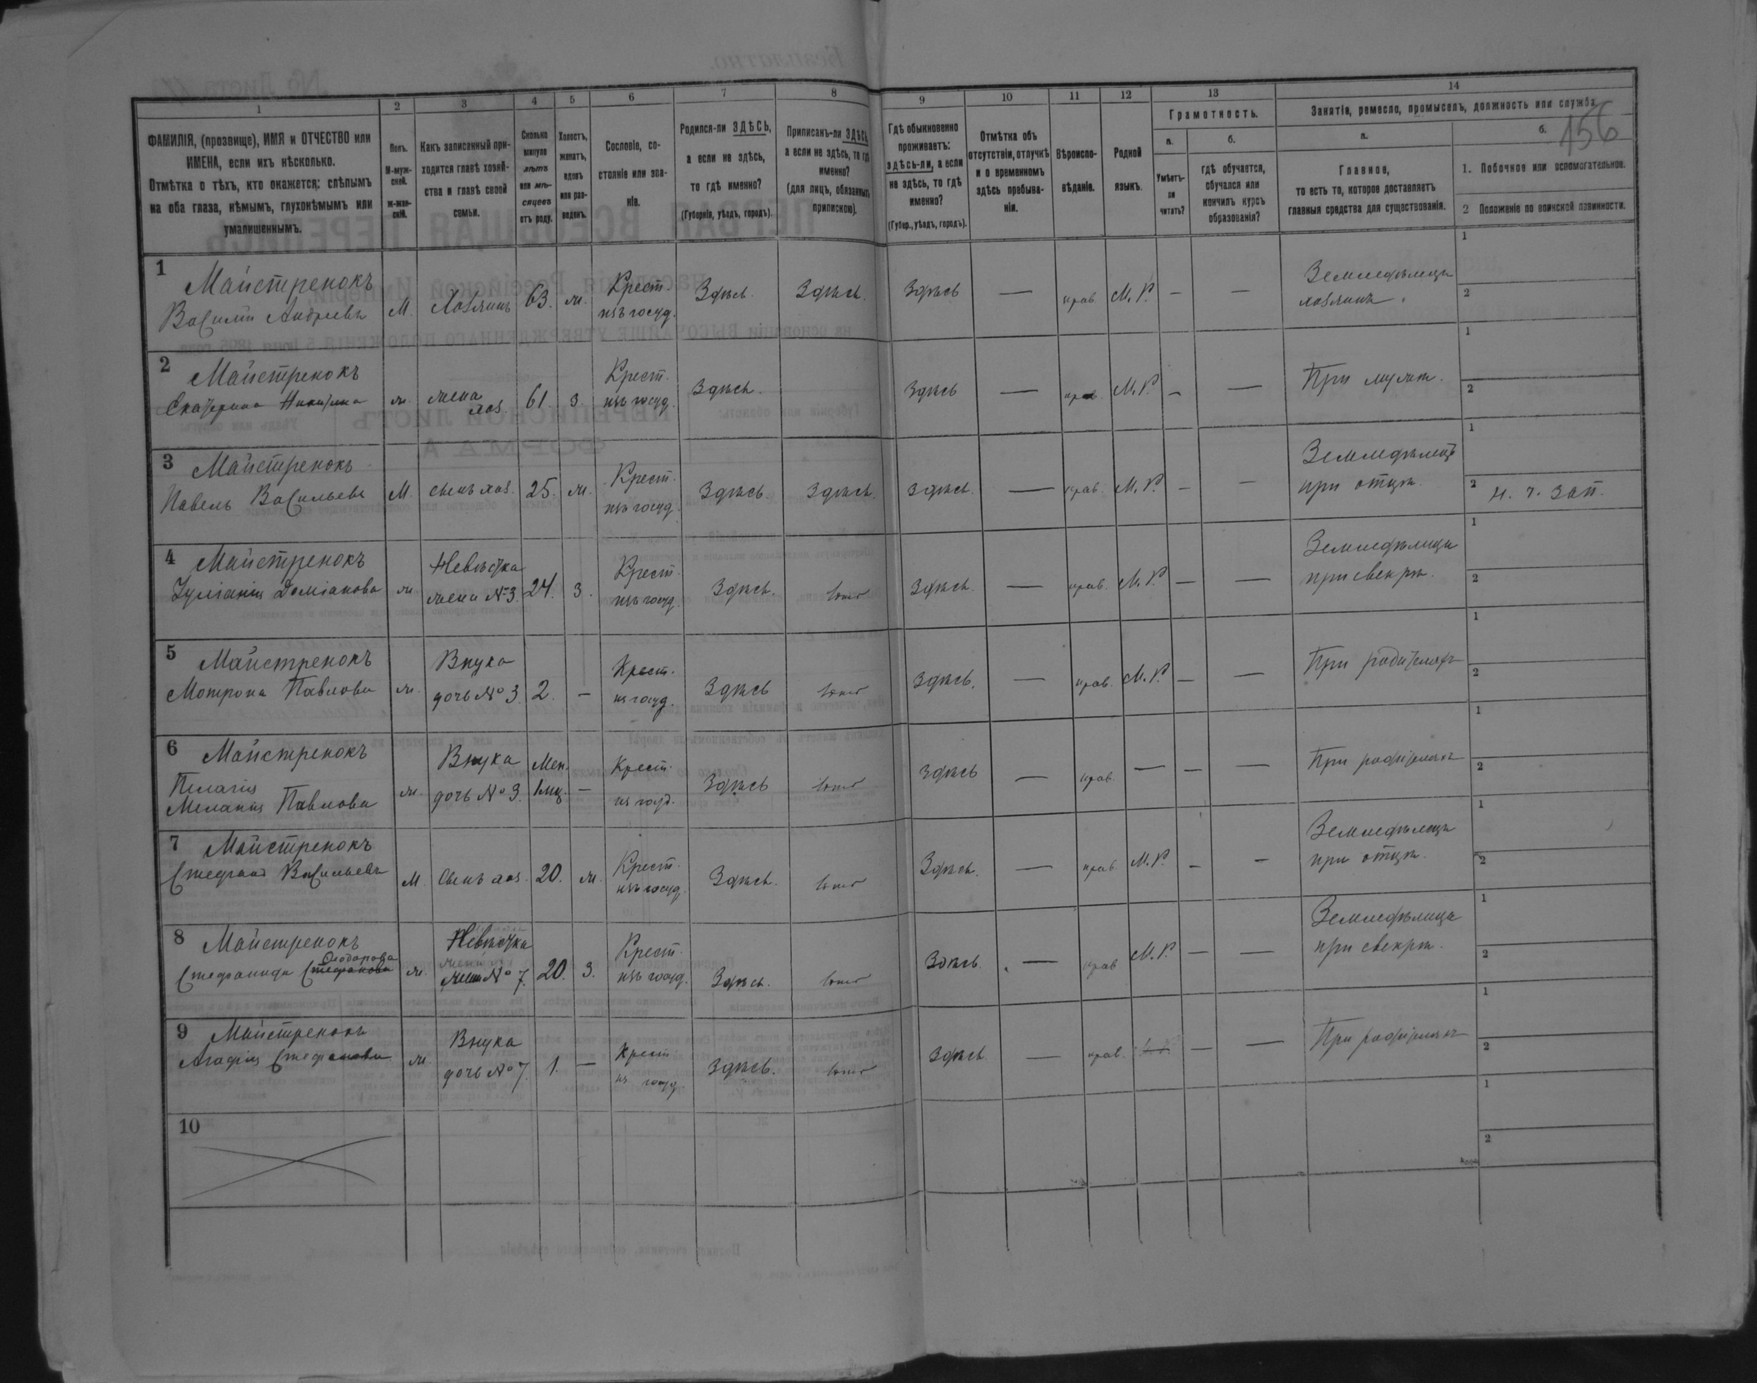 156
1 2 3 4 5 6 7 8 9 10 11 12 13 14
ФАМИЛІЯ, (прозвище), ИМЯ и ОТЧЕСТВО или
ИМЕНА, если ихъ нѣсколько.
Отмѣтка о тѣхъ, кто окажется: слѣпымъ
на оба глаза, нѣмымъ, глухонѣмымъ или
умалишеннымъ.
Полъ.
М-муж-
ской.
ж-жен-
скій.
Какъ записанный при-
ходится главѣ хозяй-
ства и главѣ своей
семьи.
Сколько
минуло
лѣтъ
или мѣ-
сяцевъ
отъ роду.
Холостъ,
женатъ,
вдовъ
или раз-
веденъ.
Сословіе, со-
стояніе или зва-
ніе.
Родился-ли ЗДѢСЬ,
а если не здѣсь,
то гдѣ именно?
(Губернія, уѣздъ, городъ).
Приписанъ-ли ЗДѢСЬ,
а если не здѣсь, то гдѣ
именно?
(для лицъ, обязанныхъ
припискою).
Гдѣ обыкновенно
проживаетъ:
здѣсь-ли, а если
не здѣсь, то гдѣ
именно?
(Губер., уѣздъ, городъ).
Отмѣтка объ
отсутствіи, отлучкѣ
и о временномъ
здѣсь пребыва-
ніи.
Вѣроиспо-
вѣданіе.
Родной
языкъ.
Грамотность.
а. б.
Умѣетъ-
ли
читать?
гдѣ обучается,
обучался или
кончилъ курсъ
образованія?
Занятіе, ремесло, промыселъ, должность или служба.
а. б.
Главное,
то есть то, которое доставляетъ
главныя средства для существованія.
1. Побочное или вспомогательное.
2 Положеніе по воинской повинности.
1 Майстренокъ Крест. Земледѣлецъ 1
Василій Андреевъ М. хозяинъ 63. ж. изъ госуд. Здѣсь. Здѣсь. Здѣсь — прав М.Р. — — хозяинъ. 2
2 Майстренокъ жена Крест. 1
Екатерина ж. хоз. 61 з. изъ госуд. Здѣсь. Здѣсь — прав М.Р. — — При мужѣ. 2
3 Майстренокъ Крест. Земледѣлецъ 1
Павелъ Васильевъ М. сынъ хоз. 25. ж. изъ госуд. Здѣсь. Здѣсь. Здѣсь. — прав. М.Р. — — при отцѣ. 2 н. ч. зап.
4 Майстренокъ Невѣстка Крест. Земледѣлица 1
Іуліанія Доміанова ж. жена №3. 24. з. изъ госуд. Здѣсь. Здѣсь. — прав. М.Р. — — при свекрѣ. 2
5 Майстренокъ Внука Крест. 1
Мотрона Павлова ж. дочь №3. 2. — из госуд. Здѣсь Здѣсь. — прав. М.Р. — — При родителяхъ 2
6 Майстренокъ Внука Мен. Крест. 1
Пелагія
Меланія Павлова ж. дочь №3. 1мц. — из госуд. Здѣсь Здѣсь — прав. — — — При родителяхъ 2
7 Майстренокъ Крест. Земледѣлецъ 1
Стефанъ Васильевъ М. Сынъ хоз. 20. ж. изъ госуд. Здѣсь. Здѣсь. — прав. М.Р. — — при отцѣ. 2
8 Майстренокъ Невѣстка Крест. Земледѣлица 1
Ѳеодорова
Стефанида Стефанова ж. жена №7. 20. з. изъ госуд. Здѣсь. Здѣсь. — прав М.Р. — — при свекрѣ. 2
9 Майстренокъ Внука Крест 1
Агафія Стефанова ж. дочь №7. 1. — из госуд. Здѣсь. Здѣсь — прав. — — При родителяхъ 2
10 1
2